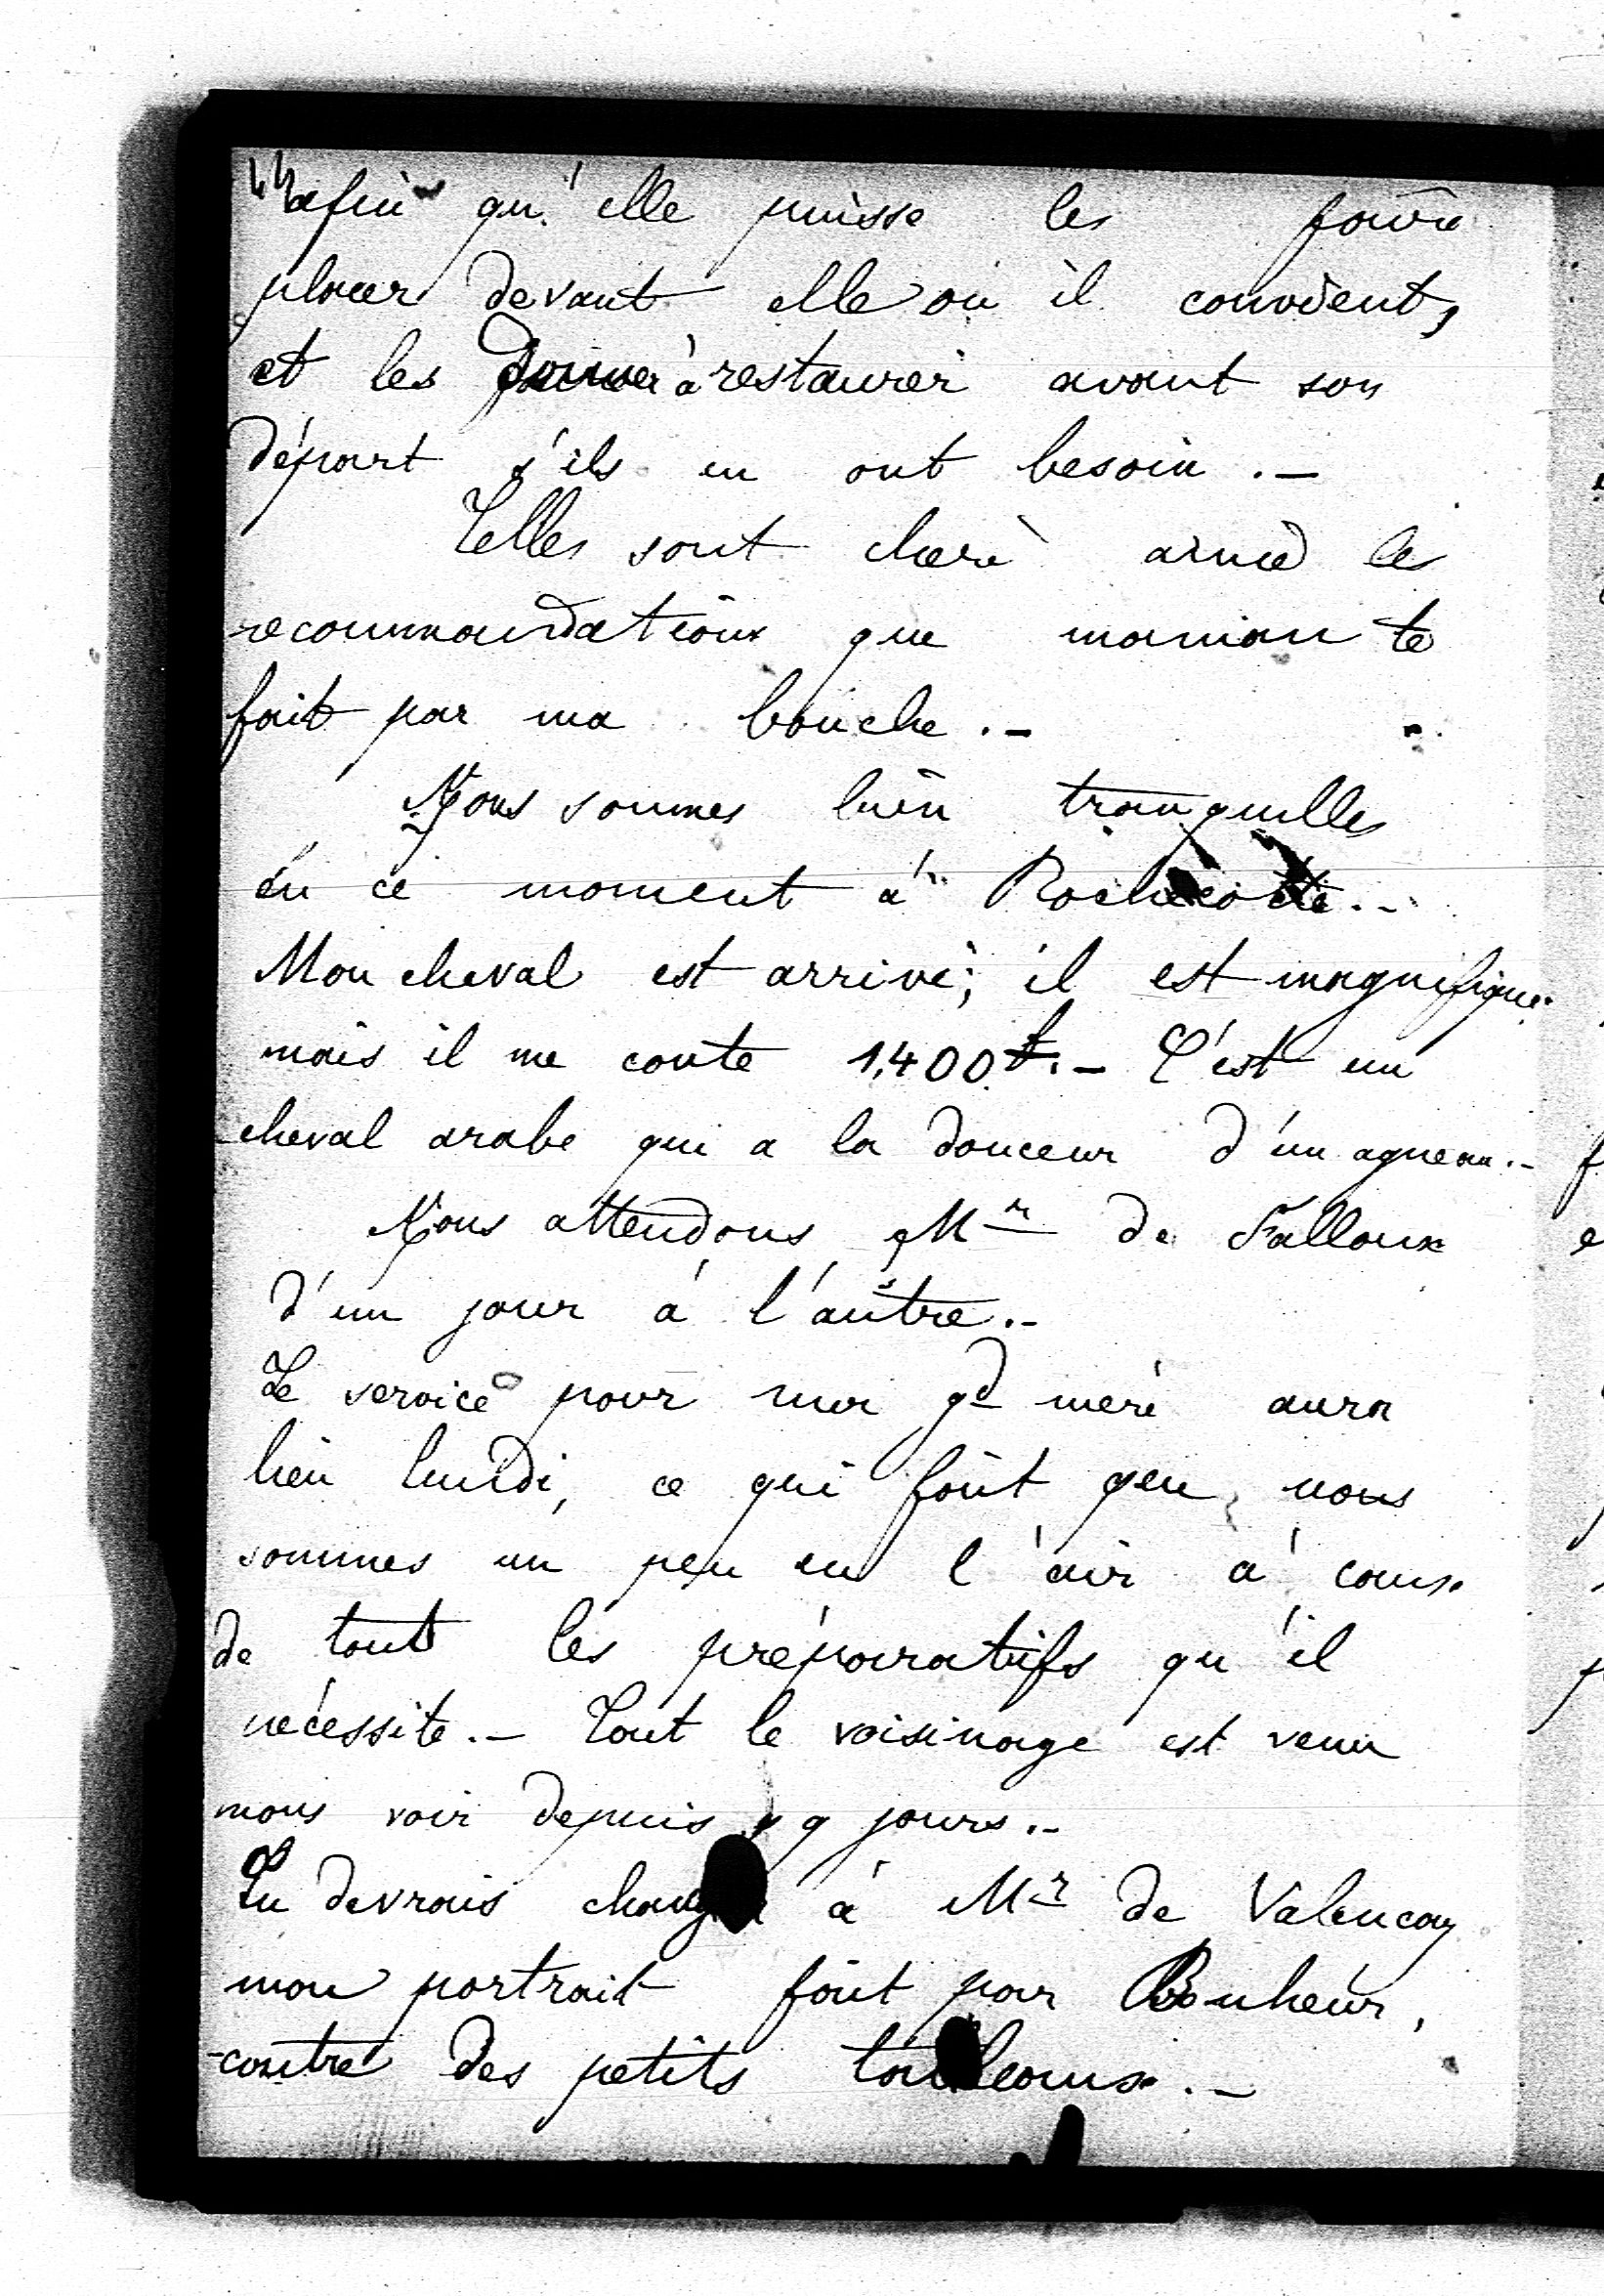 44 afin qu'elle puisse les faire
placer devant elle où il convient,
et les donner à restaurer avant son
départ s'ils en ont besoin. —
Telles sont chère amie les
recommandations que maman te
fait par ma bouche. —
Nous sommes bien tranquilles
en ce moment à Rochecotte. —
Mon cheval est arrivé; il est magnifique
mais il me coute 1,400 f. — C'est un
cheval arabe qui a la douceur d'un agneau. —
Nous attendons Mr de Falloux
d'un jour à l'autre. —
Le service pour ma gd mère aura
lieu lundi, ce qui fait que nous
sommes un peu en l'air à cause
de tout les préparatifs qu'il
nécessite. — Tout le voisinage est venu
nous voir depuis 9 jours. —
Tu devrais changer à Mr de Valencay
mon portrait fait par Bonheur,
contre des petits tableaux. —